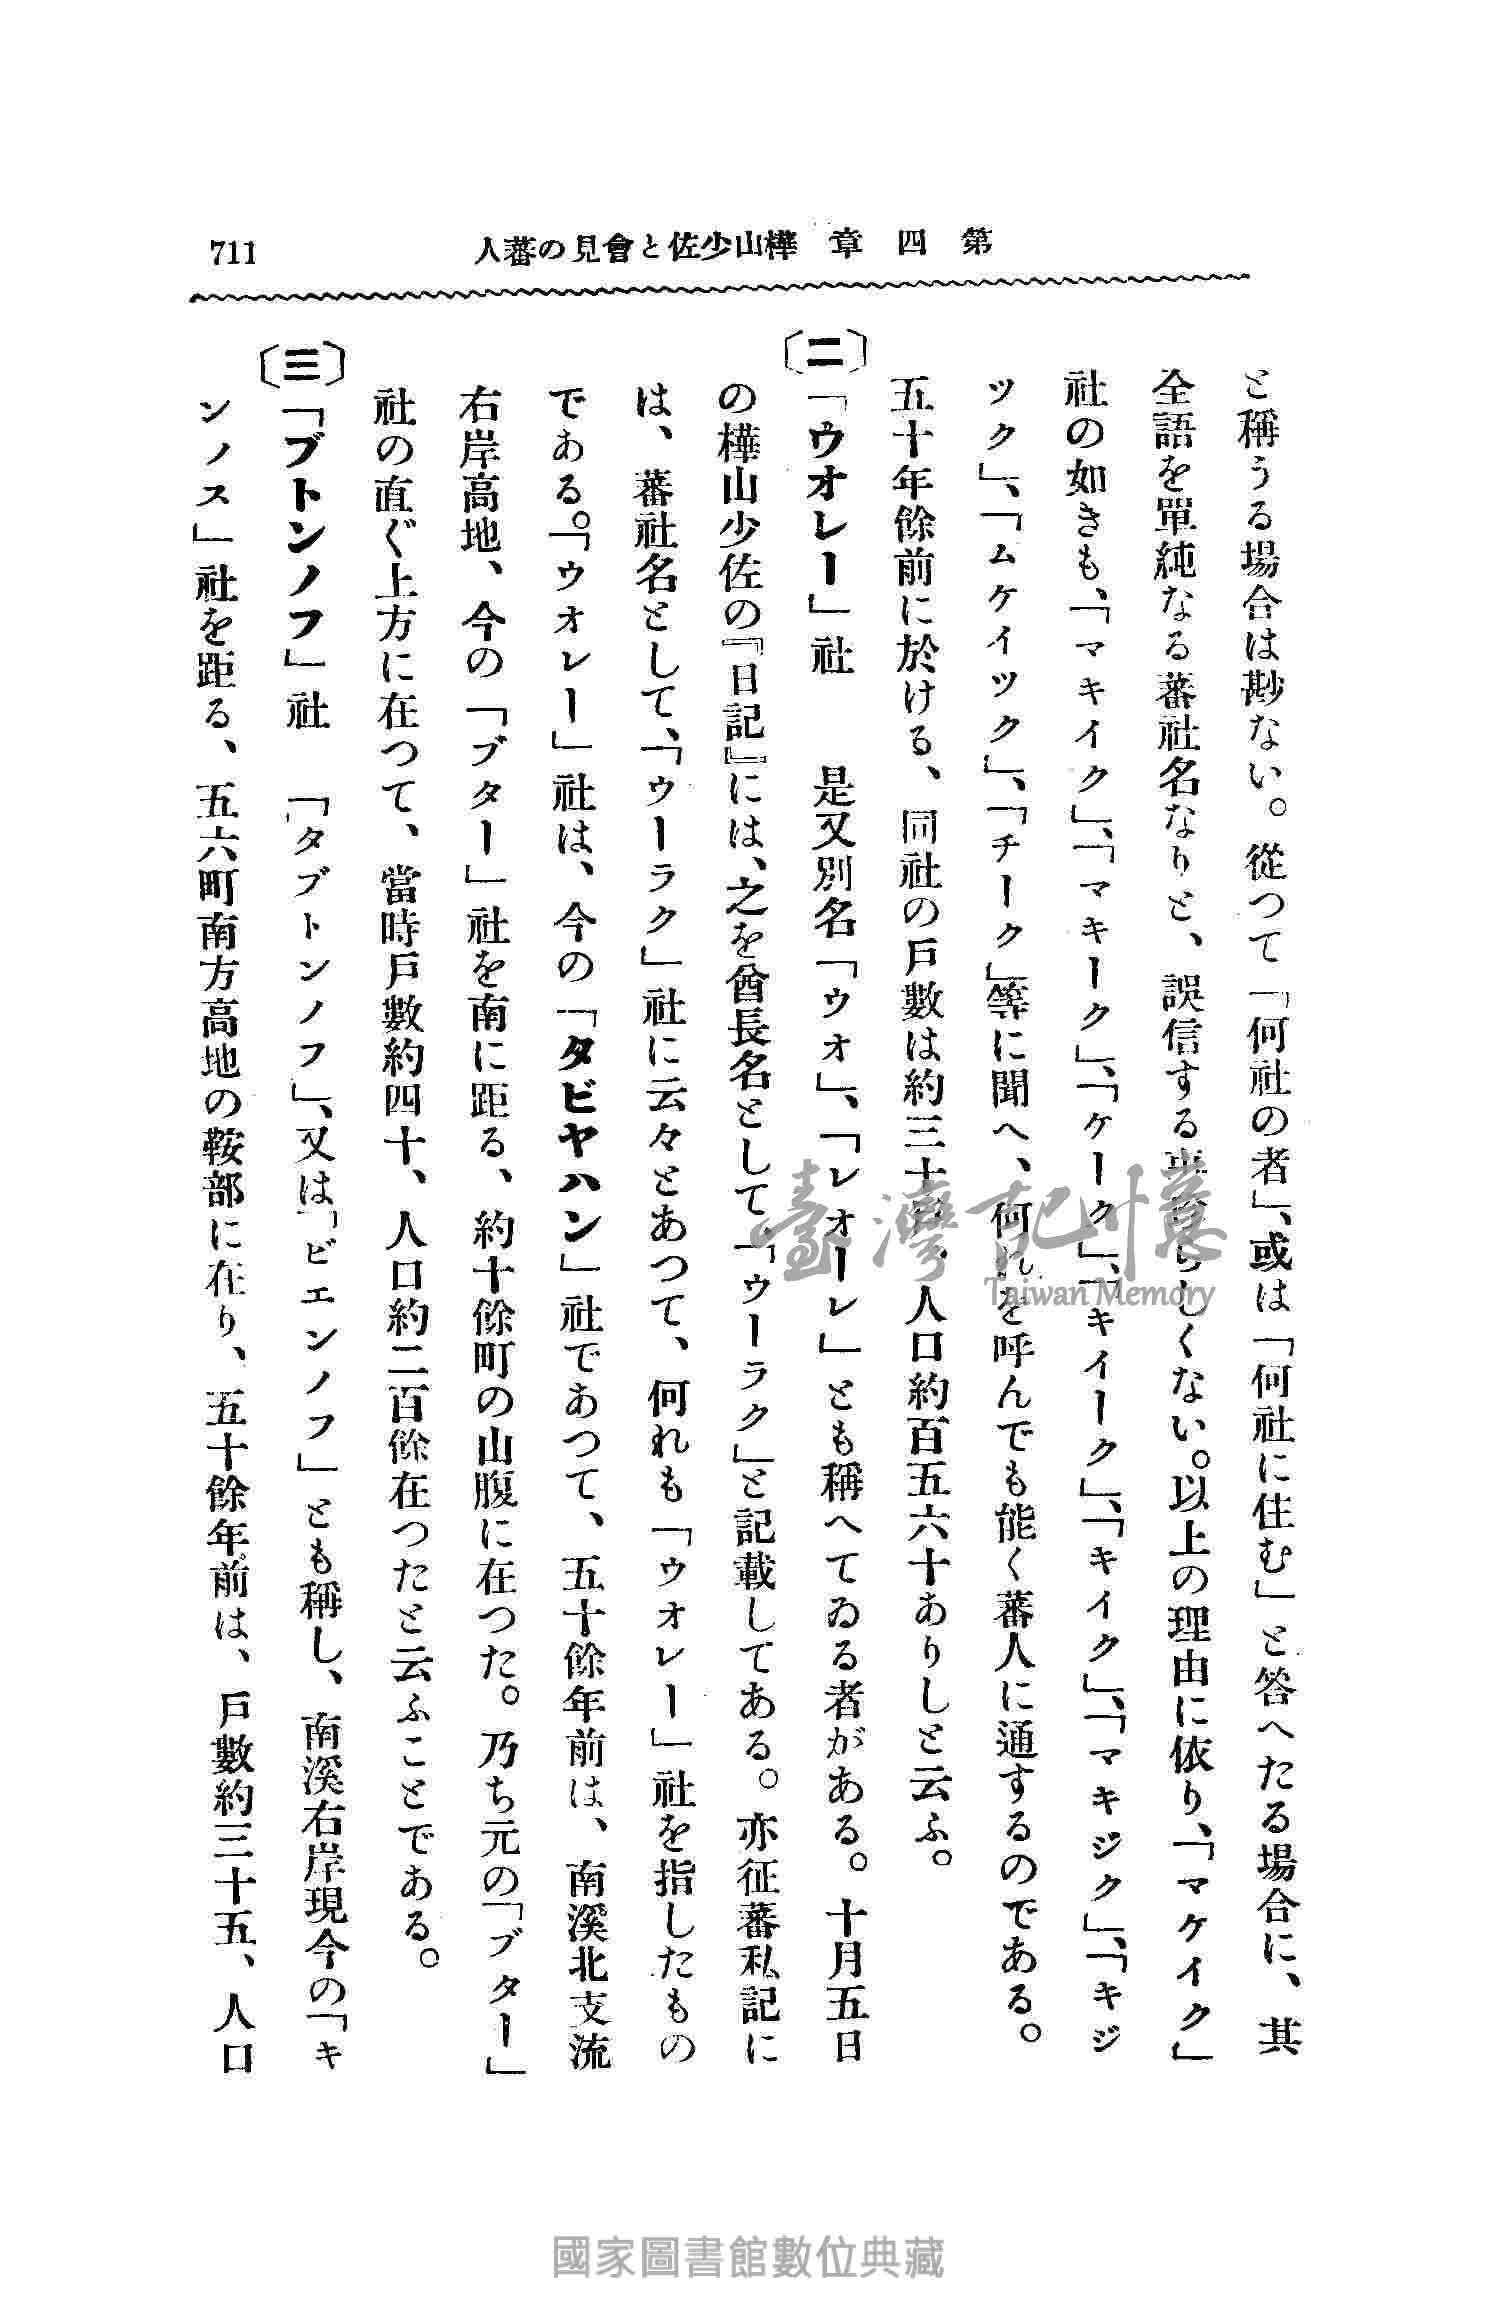 第四章 樺山少佐と會見の蕃人
711
と稱うる場合は尠ない。從つて「何社の者」、或は「何社に住む」と答へたる場合に、其
全語を單純なる蕃社名なりと、誤信するらしくない。以上の理由に依り、「マケイク」
社の如きも、「マキイク」、「マキーク」、「ケーク」、「キイーク」、「キイク」、「マキジク」、「キジ
ック」、「ムケイック」、「チーク」等に聞へ、何れを呼んでも能く蕃人に通するのである。
五十年餘前に於ける、同社の戶數は約三十、人口約百五六十ありしと云ふ。
〔二〕「ウオレー」社 是又別名「ウオ」、「レオーレ」とも稱へてゐる者がある。十月五日
の樺山少佐の『日記』には、之を酋長名として、「ウーラク」と記載してある。亦征蕃私記に
は、蕃社名として、「ウーラク」社に云々とあつて、何れも「ウオレー」社を指したもの
である。「ウオレー」社は、今の「タビヤハン」社であつて、五十餘年前は、南溪北支流
右岸高地、今の「ブター」社を南に距る、約十餘町の山腹に在つた。乃ち元の「ブター」
社の直ぐ上方に在つて、當時戶數約四十、人口約二百餘在つたと云ふことである。
〔三〕「ブトンノフ」社 「タブトンノフ」、又は「ビエンノフ」とも稱し、南溪右岸現今の「キ
ンノス」社を距る、五六町南方高地の鞍部に在り、五十餘年前は、戶數約三十五、人口
臺灣記憶
Taiwan Memory
國家圖書館數位典藏